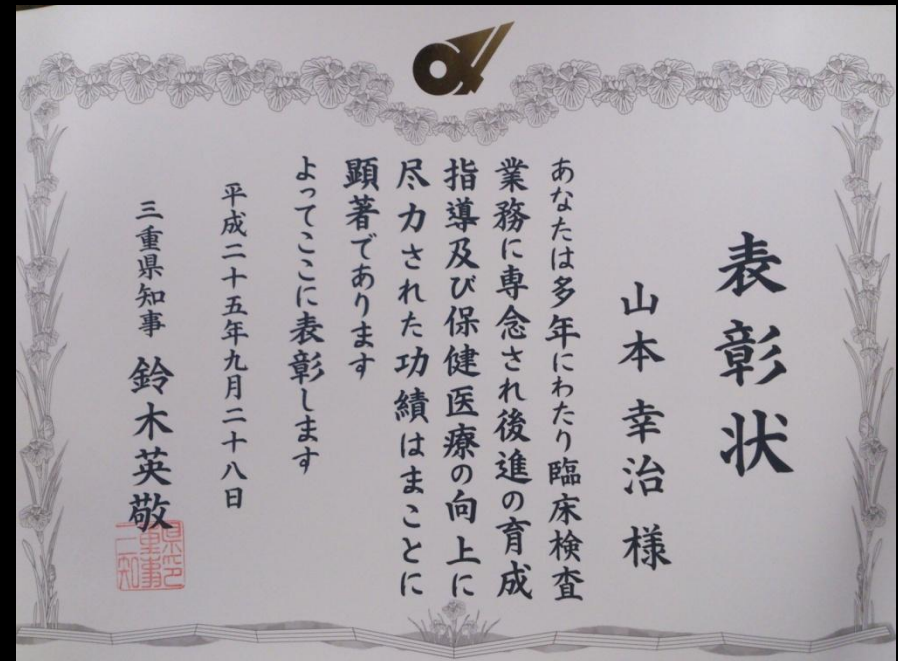 表彰状
山本幸治様
あなたは多年にわたり臨床検査
業務に専念され後進の育成
指導及び保健医療の向上に
尽力された功績はまことに
顕著であります
よってここに表彰します
平成二十五年九月二十八日
三重県知事 鈴木英敬